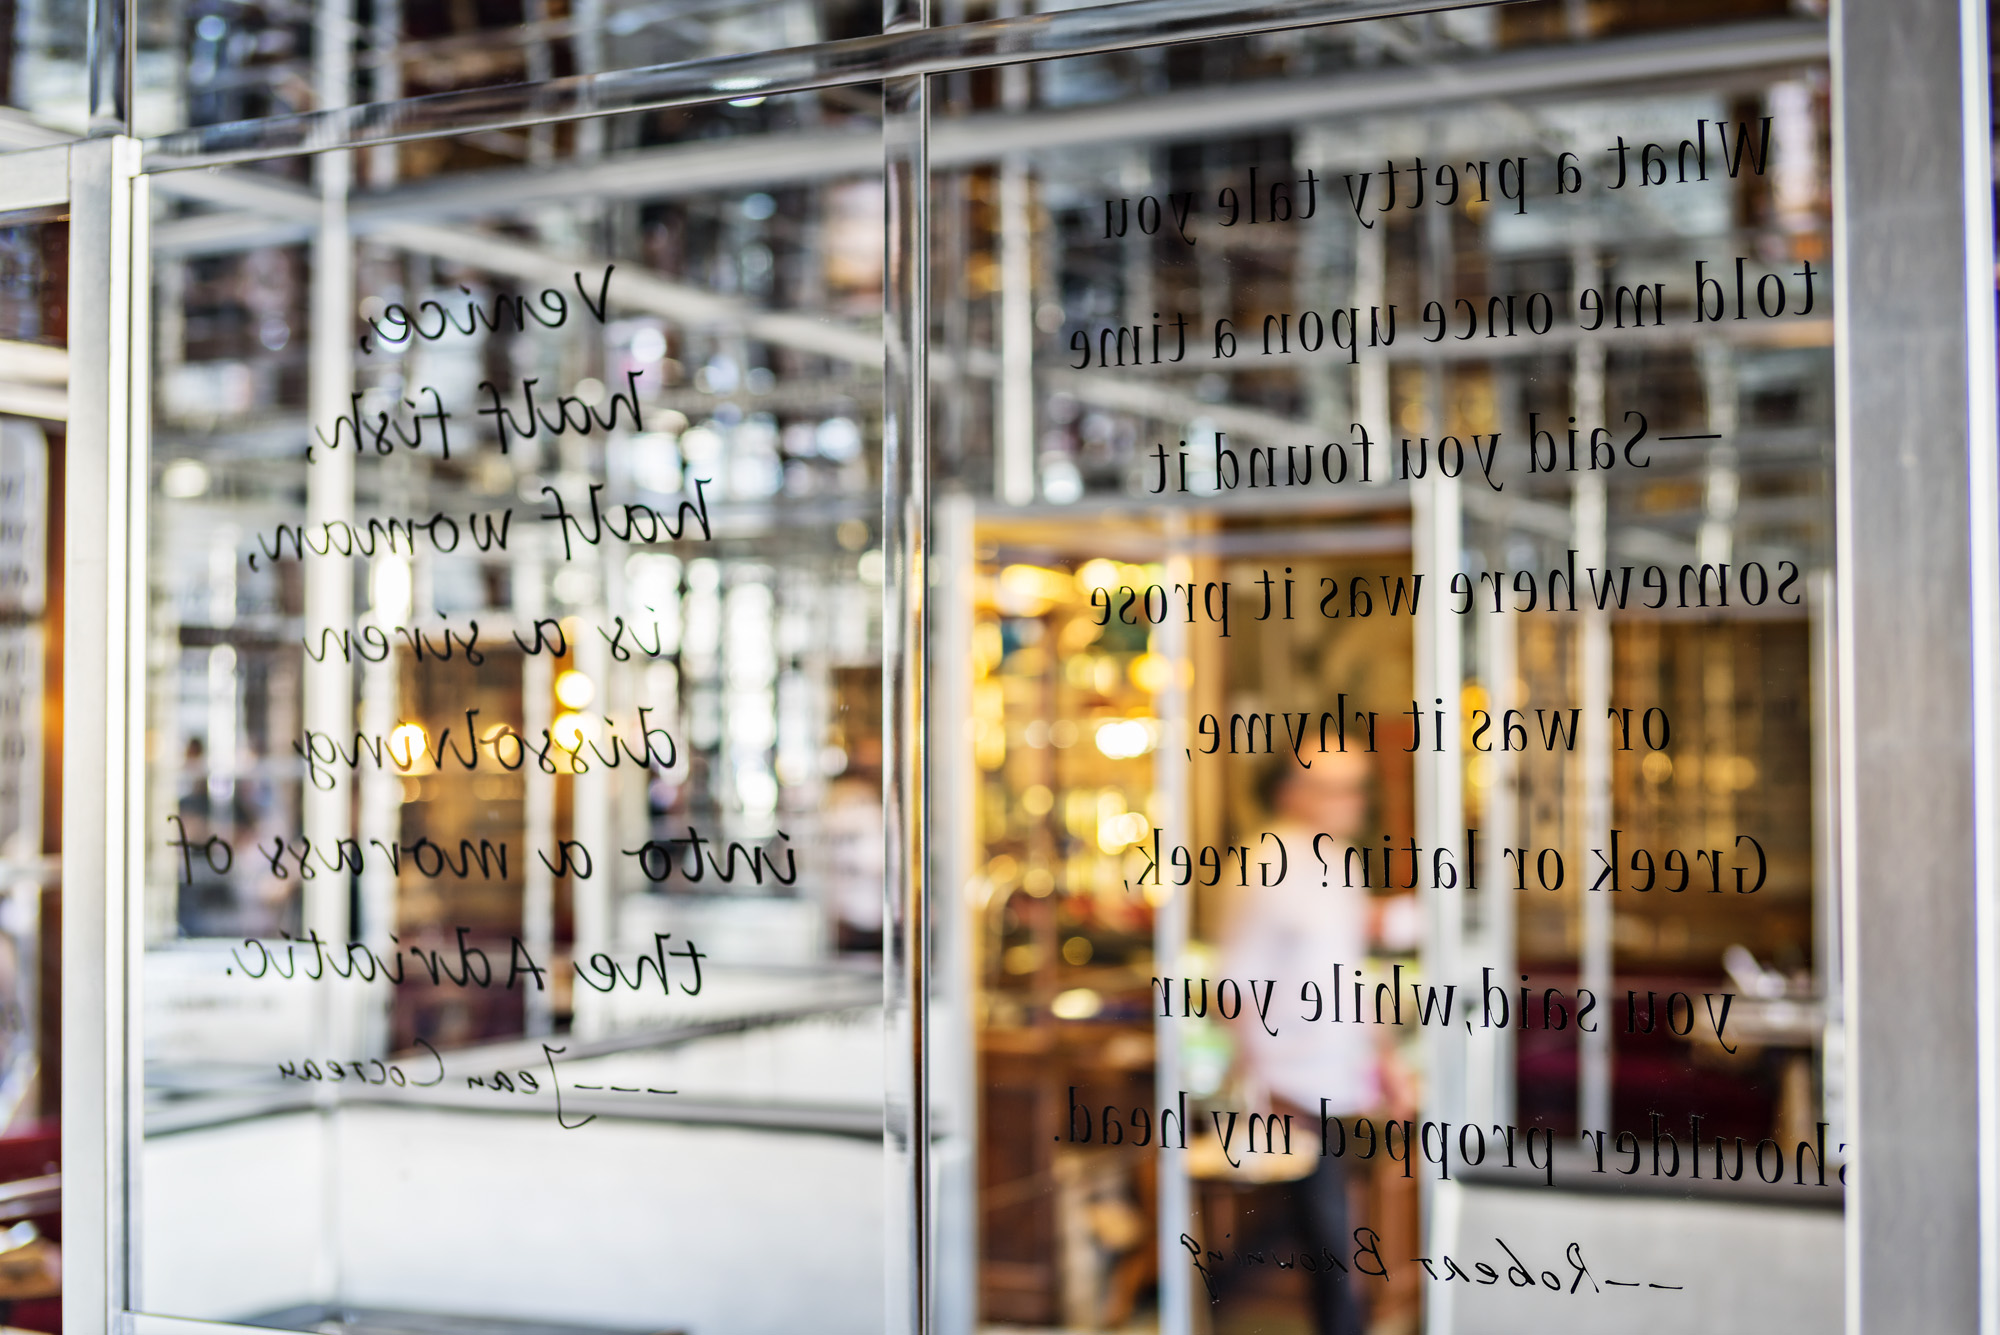 Venice,
half fish,
half woman,
is a siren
dissolving
into a morass of
the Adriatic.
---Jean Cocteau
What a pretty tale you
told me once upon a time
—Said you found it
somewhere was it prose
or was it rhyme,
Greek or latin? Greek,
you said,while your
shoulder propped my head.
--Robert Browning